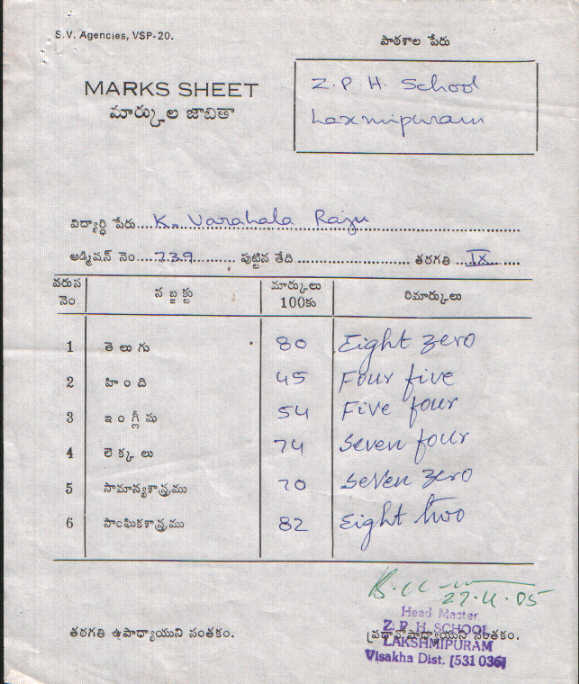 S.V. Agencies, VSP-20.
పాఠశాల పేరు
MARKS SHEET
మార్కుల జాబితా
Z.P.H. School
Laxmipuram
విద్యార్థి పేరు....K. Varahala Raju
అడ్మిషన్ నెం....739.... పుట్టిన తేది .... తరగతి ...IX...
వరుస నెం సబ్జక్టు మార్కులు 100కు రిమార్కులు
1 తెలుగు 80 Eight zero
2 హింది 45 Four five
3 ఇంగ్లీషు 54 Five four
4 లెక్కలు 74 Seven four
5 సామాన్యశాస్త్రము 70 Seven zero
6 సాంఘికశాస్త్రము 82 Eight two
05
Head Master
తరగతి ఉపాధ్యాయుని సంతకం. ప్రధానోపాధ్యాయుని సంతకం.
Z.P.H. SCHOOL
LAKSHMIPURAM
Visakha Dist. [531 036]